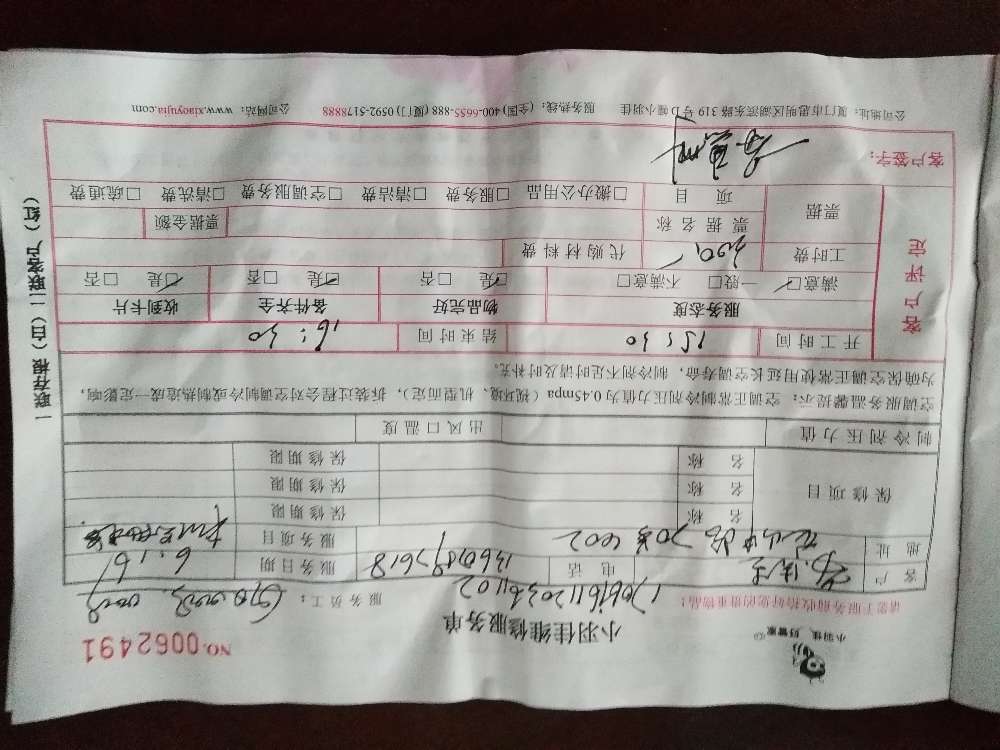 小羽佳 好管家
小羽佳维修服务单
NO.0062491
请您于服务前收拾好您的贵重物品!
服务员工:
客户 电话 服务日期 6.16
地址 402 服务项目
保修项目
名称 保修期限
名称 保修期限
名称 保修期限
制冷剂压力值 出风口温度
空调服务温馨提示: 空调正常制冷剂压力值为0.45mpa(视环境、机型而定),拆装过程会对空调制冷或制热造成一定影响,
为确保空调正常使用延长空调寿命,制冷剂不足时请及时补充。
客户评定
开工时间 15:30 结束时间 16:30
服务态度 物品完好 备件齐全 收到卡片
满意☑ 一般□ 不满意□ ☑是 □否 ☑是 □否 ☑是 □否
工时费 200 代购材料费
票据 票据名称 票据金额
项目 □搬办公用品 □服务费 □清洁费 □空调服务费 □清洗费 □疏通费
客户签字:
公司地址: 厦门市思明区湖滨东路319号D幢小羽佳 服务热线: (全国)400-6655-888 (厦门)0592-5178888 公司网站: www.xiaoyujia.com
一联存根(白)二联客户(红)